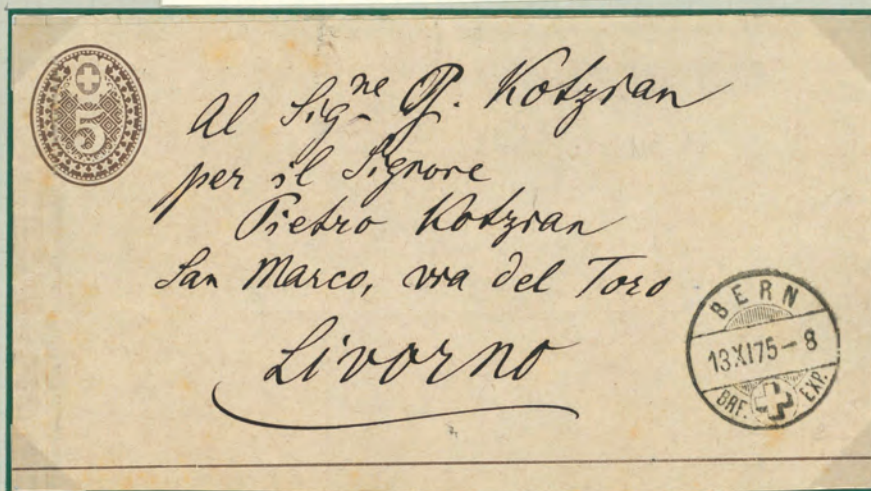 5
Al Sig.ne P. Kotzian
per il Signore
Pietro Kotzian
San Marco, via del Toro
Livorno
BERN
13 XI 75 - 8
BRF. EXP.